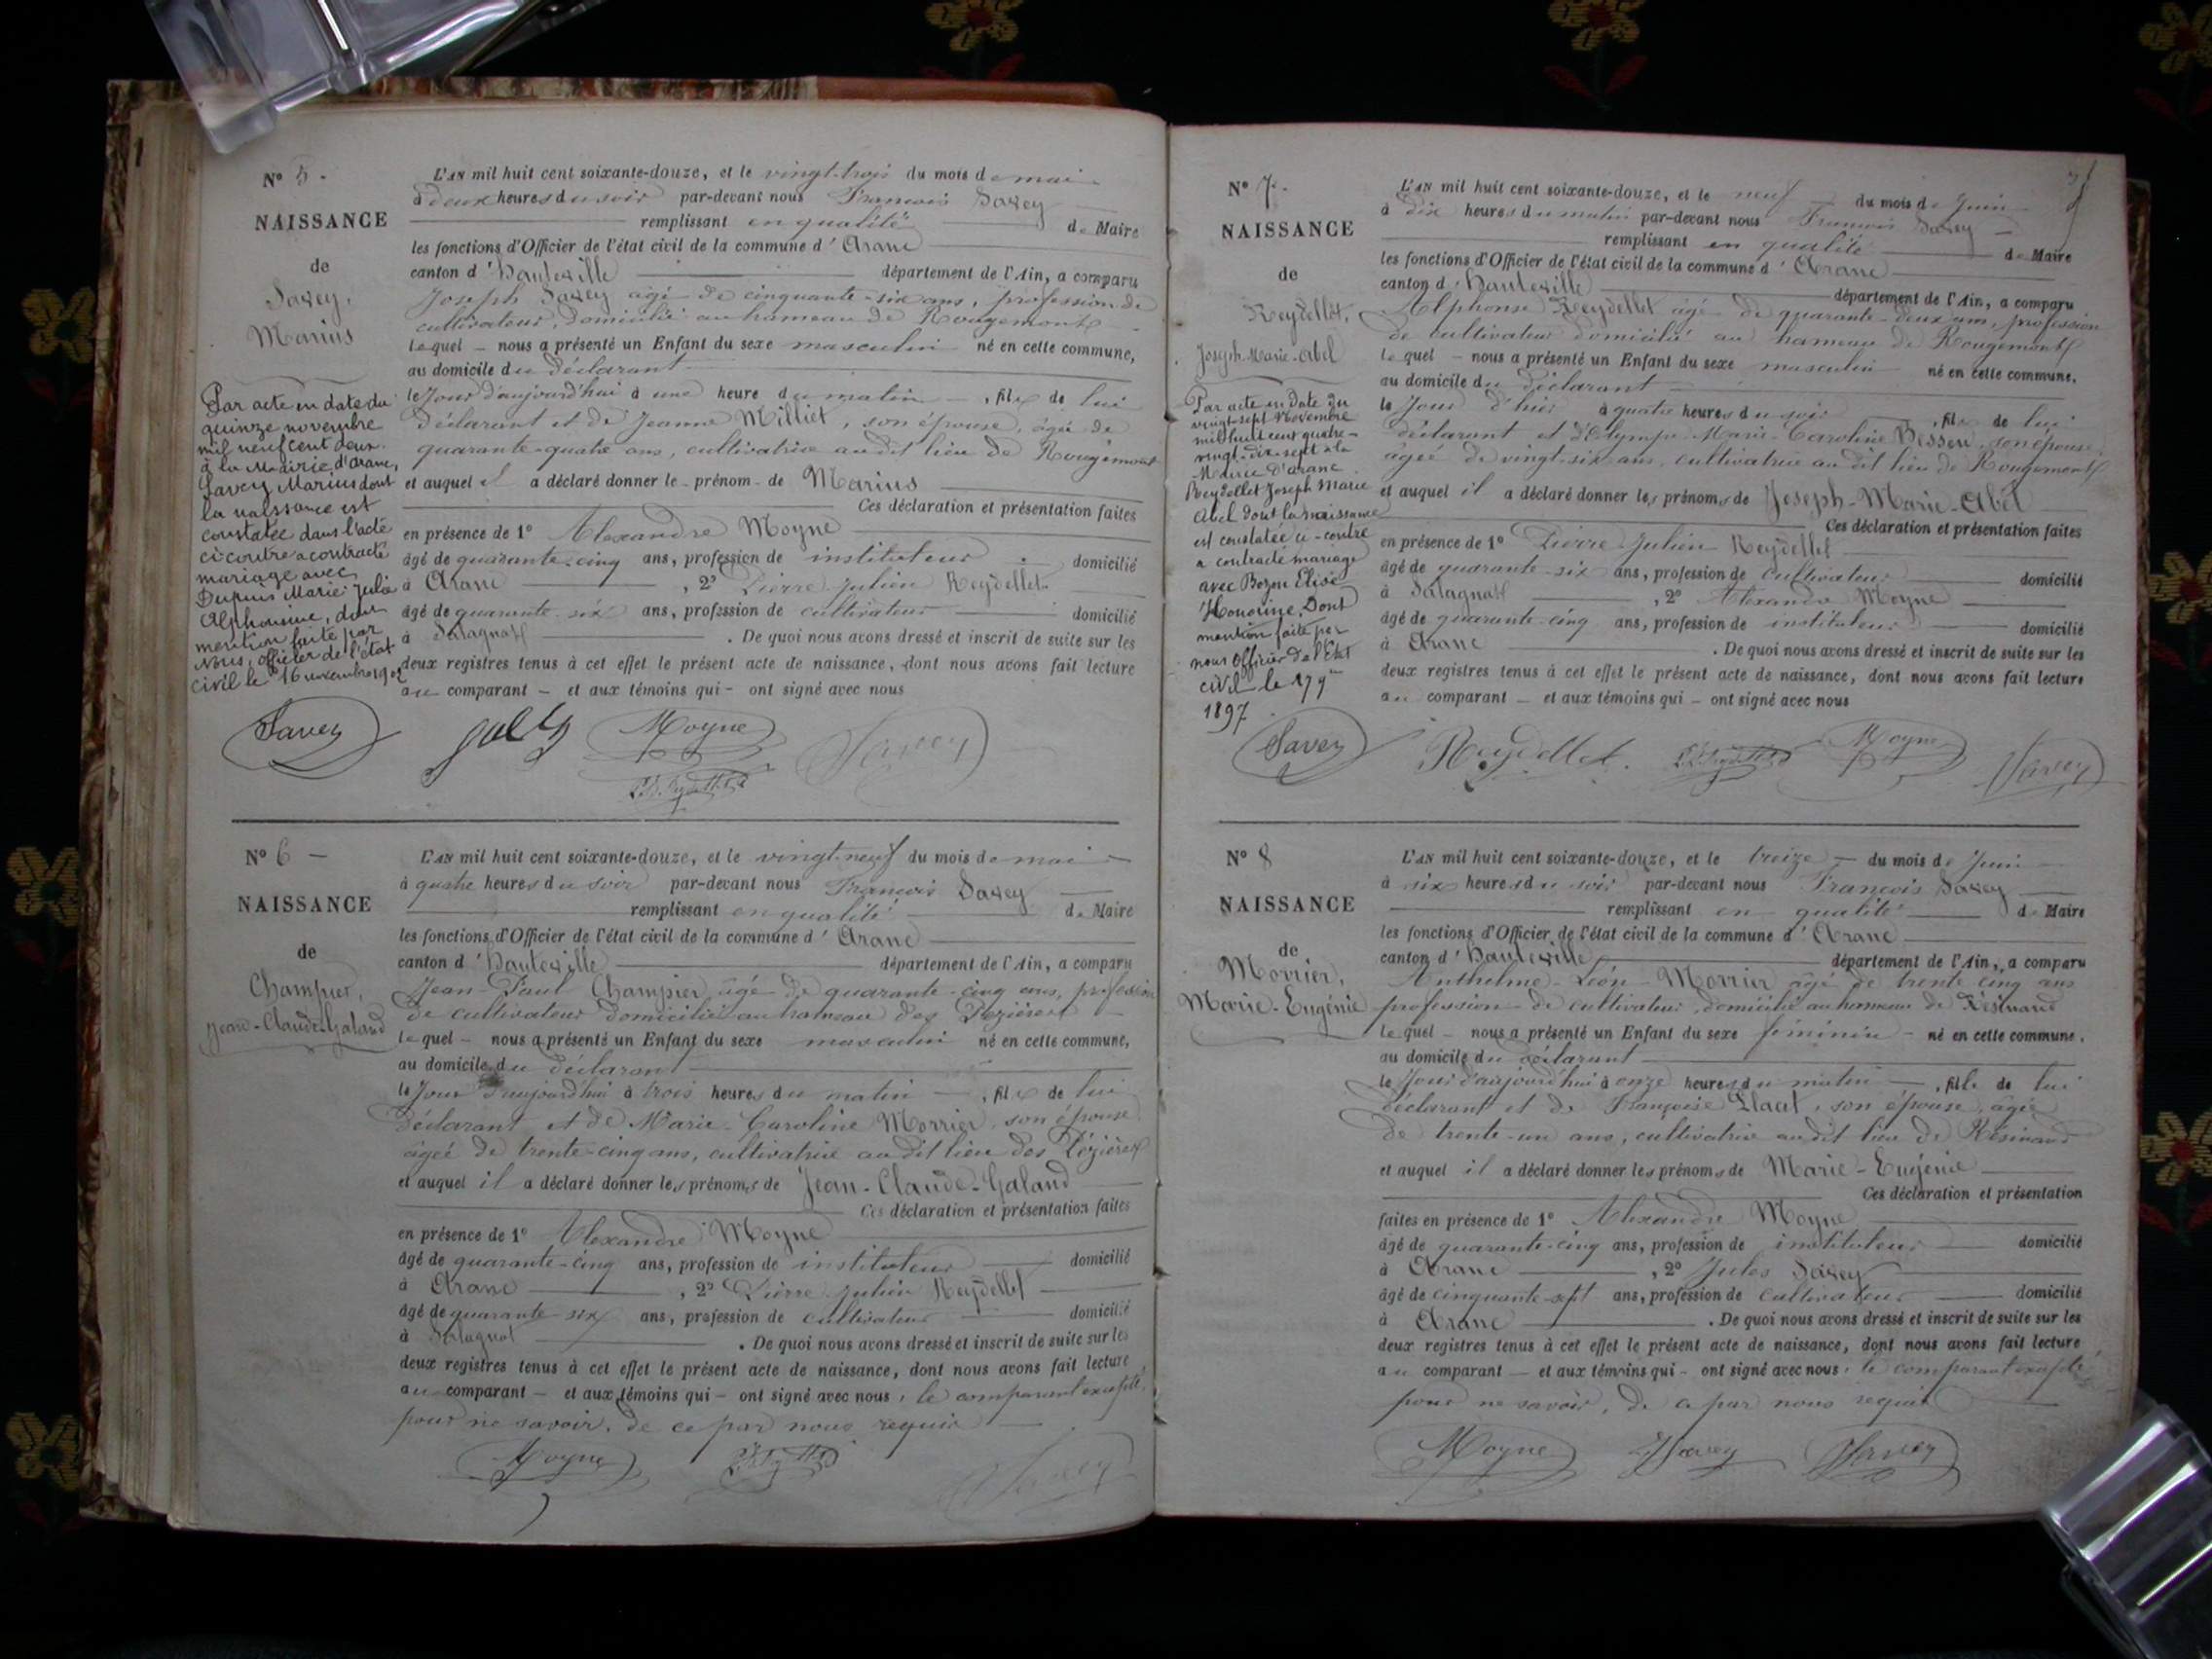 N° 5.
NAISSANCE
de
Savey,
Marius
Par acte en date du
quinze novembre
mil neuf cent deux
à la Mairie d'Aranc,
Savey Marius dont
la naissance est
constatée dans l'acte
ci-contre a contracté
mariage avec
Dupuis Marie Julie
Alphonsine, dont
mention faite par
Nous, officier de l'état
civil le 16 novembre 1902
L'AN mil huit cent soixante-douze, et le vingt-trois du mois de mai
à deux heures du soir par-devant nous François Savey
remplissant en qualité de Maire
les fonctions d'Officier de l'état civil de la commune d'Aranc
canton d'Hauteville département de l'Ain, a comparu
Joseph Savey âgé de cinquante-six ans, profession de
cultivateur, domicilié au hameau de Rougemont
lequel nous a présenté un Enfant du sexe masculin né en cette commune,
au domicile du déclarant
le Jour d'aujourd'hui à une heure du matin, fils de lui
déclarant et de Jeanne Milliet, son épouse, âgée de
quarante-quatre ans, cultivatrice au dit lieu de Rougemont
et auquel il a déclaré donner le prénom de Marius
Ces déclaration et présentation faites
en présence de 1° Alexandre Moyne
âgé de quarante-cinq ans, profession de instituteur domicilié
à Aranc, 2° Pierre Julien Reydellet
âgé de quarante-six ans, profession de cultivateur domicilié
à Salagnat. De quoi nous avons dressé et inscrit de suite sur les
deux registres tenus à cet effet le présent acte de naissance, dont nous avons fait lecture
au comparant et aux témoins qui ont signé avec nous
Savey Moyne Savey
N° 6
NAISSANCE
de
Champier,
Jean-Claude-Galand
L'AN mil huit cent soixante-douze, et le vingt-neuf du mois de mai
à quatre heures du soir par-devant nous François Savey
remplissant en qualité de Maire
les fonctions d'Officier de l'état civil de la commune d'Aranc
canton d'Hauteville département de l'Ain, a comparu
Jean-Paul Champier âgé de quarante-cinq ans, profession
de cultivateur domicilié au hameau des Pézières
lequel nous a présenté un Enfant du sexe masculin né en cette commune,
au domicile du déclarant
le Jour d'aujourd'hui à trois heures du matin, fils de lui
déclarant et de Marie-Caroline Morrier, son épouse
âgée de trente-cinq ans, cultivatrice au dit lieu des Pézières
et auquel il a déclaré donner les prénoms de Jean-Claude-Galand
Ces déclaration et présentation faites
en présence de 1° Alexandre Moyne
âgé de quarante-cinq ans, profession de instituteur domicilié
à Aranc, 2° Pierre Julien Reydellet
âgé de quarante six ans, profession de cultivateur domicilié
à Salagnat. De quoi nous avons dressé et inscrit de suite sur les
deux registres tenus à cet effet le présent acte de naissance, dont nous avons fait lecture
au comparant et aux témoins qui ont signé avec nous, le comparant excepté,
pour ne savoir, de ce par nous requis
Moyne Savey
N° 7.
NAISSANCE
de
Reydellet,
Joseph-Marie-Abel
Par acte en date du
vingt-sept Novembre
mil huit cent quatre-
vingt-dix-sept à la
Mairie d'Aranc
Reydellet Joseph Marie
Abel dont la naissance
est constatée ci-contre
a contracté mariage
avec Bozon Elise
Honorine. Dont
mention faite par
nous Officier de l'Etat
civil le 27 9bre
1897.
L'AN mil huit cent soixante-douze, et le neuf du mois de Juin
à dix heures du matin par-devant nous François Savey
remplissant en qualité de Maire
les fonctions d'Officier de l'état civil de la commune d'Aranc
canton d'Hauteville département de l'Ain, a comparu
Alphonse Reydellet âgé de quarante-deux ans, profession
de cultivateur domicilié au hameau de Rougemont
lequel nous a présenté un Enfant du sexe masculin né en cette commune,
au domicile du déclarant
le Jour d'hier à quatre heures du soir, fils de lui
déclarant et d'Olympe Marie-Caroline Besson, son épouse,
âgée de vingt-six ans, cultivatrice au dit lieu de Rougemont
et auquel il a déclaré donner les prénoms de Joseph-Marie-Abel
Ces déclaration et présentation faites
en présence de 1° Pierre Julien Reydellet
âgé de quarante-six ans, profession de cultivateur domicilié
à Salagnat, 2° Alexandre Moyne
âgé de quarante-cinq ans, profession de instituteur domicilié
à Aranc. De quoi nous avons dressé et inscrit de suite sur les
deux registres tenus à cet effet le présent acte de naissance, dont nous avons fait lecture
au comparant et aux témoins qui ont signé avec nous
Savey Reydellet. Moyne Savey
N° 8
NAISSANCE
de
Morrier,
Marie-Eugénie
L'AN mil huit cent soixante-douze, et le treize du mois de Juin
à six heures du soir par-devant nous François Savey
remplissant en qualité de Maire
les fonctions d'Officier de l'état civil de la commune d'Aranc
canton d'Hauteville département de l'Ain, a comparu
Anthelme-Léon Morrier âgé de trente cinq ans
profession de cultivateur, domicilié au hameau de Résinand
lequel nous a présenté un Enfant du sexe féminin né en cette commune,
au domicile du déclarant
le Jour d'aujourd'hui à onze heures du matin, fille de lui
déclarant et de Françoise, son épouse, âgée
de trente-un ans, cultivatrice au dit lieu de Résinand
et auquel il a déclaré donner les prénoms de Marie-Eugénie
Ces déclaration et présentation
faites en présence de 1° Alexandre Moyne
âgé de quarante-cinq ans, profession de instituteur domicilié
à Aranc, 2° Jules Savey
âgé de cinquante-sept ans, profession de cultivateur domicilié
à Aranc. De quoi nous avons dressé et inscrit de suite sur les
deux registres tenus à cet effet le présent acte de naissance, dont nous avons fait lecture
au comparant et aux témoins qui ont signé avec nous, le comparant excepté
pour ne savoir, de ce par nous requis
Moyne JSavey Savey